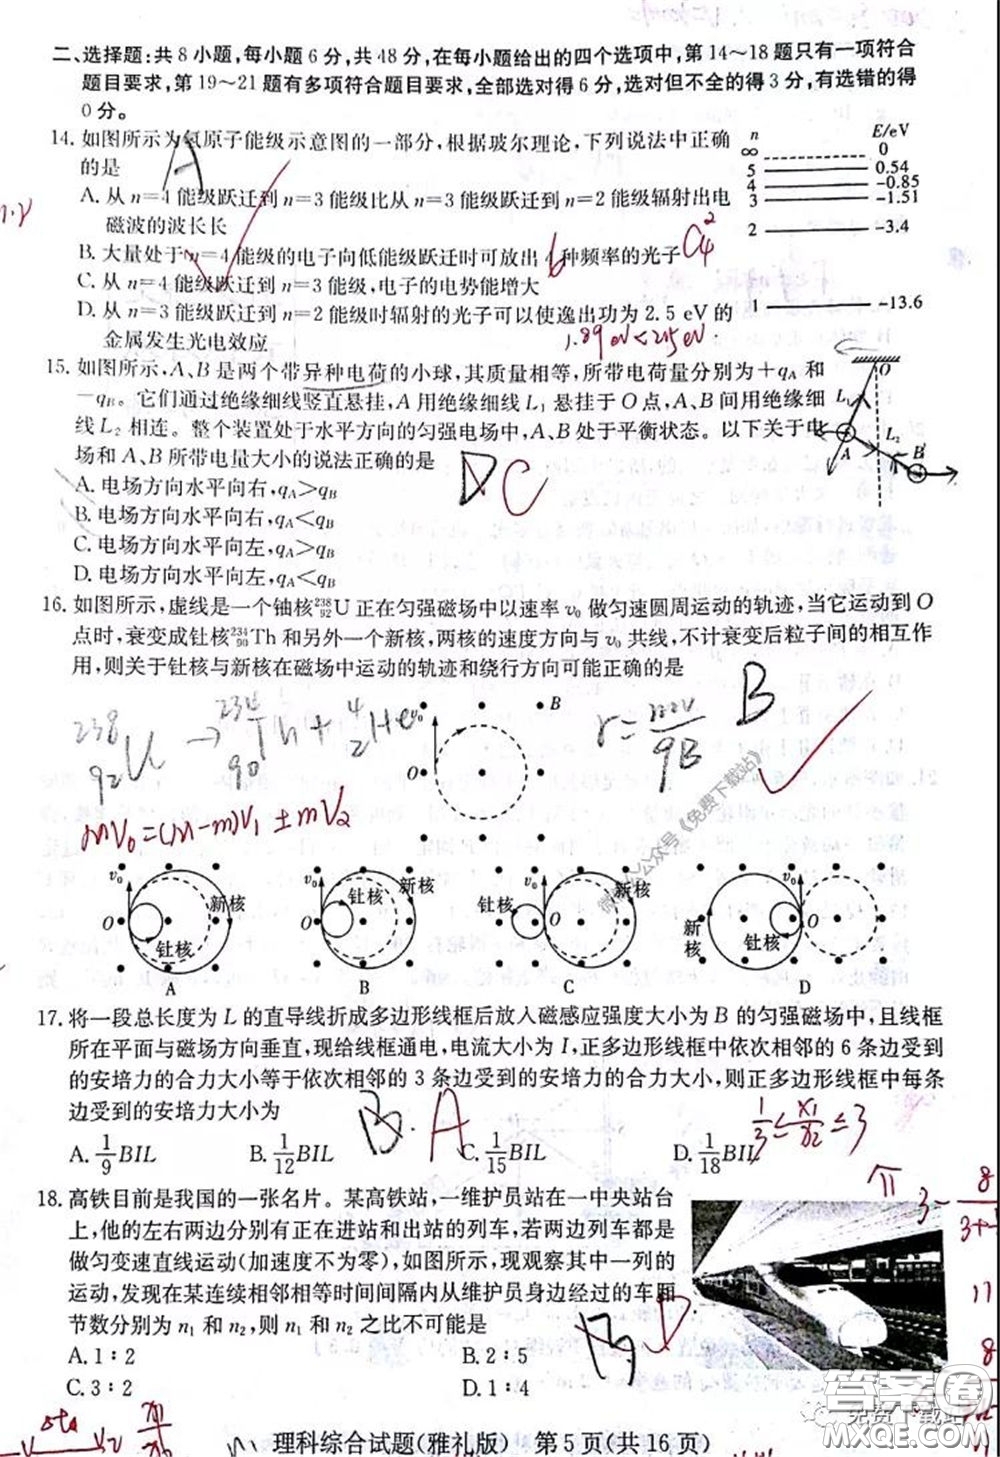 二、选择题:共8小题,每小题6分,共48分,在每小题给出的四个选项中,第14～18题只有一项符合
题目要求,第19～21题有多项符合题目要求,全部选对得6分,选对但不全的得3分,有选错的得
0分。
14. 如图所示为氢原子能级示意图的一部分,根据玻尔理论,下列说法中正确
的是
A
A. 从n=4能级跃迁到n=3能级比从n=3能级跃迁到n=2能级辐射出电
磁波的波长长
B. 大量处于n=4能级的电子向低能级跃迁时可放出4种频率的光子
6
C. 从n=4能级跃迁到n=3能级,电子的电势能增大
D. 从n=3能级跃迁到n=2能级时辐射的光子可以使逸出功为2.5 eV的
金属发生光电效应
1.89eV<2.5eV
n E/eV
∞ 0
5 0.54
4 -0.85
3 -1.51
2 -3.4
1 -13.6
15. 如图所示,A、B是两个带异种电荷的小球,其质量相等,所带电荷量分别为+qA和
-qB。它们通过绝缘细线竖直悬挂,A用绝缘细线L1悬挂于O点,A、B间用绝缘细
线L2相连。整个装置处于水平方向的匀强电场中,A、B处于平衡状态。以下关于电
场和A、B所带电量大小的说法正确的是
D C
A. 电场方向水平向右,qA>qB
B. 电场方向水平向右,qA<qB
C. 电场方向水平向左,qA>qB
D. 电场方向水平向左,qA<qB
O
L1
L2
A
B
16. 如图所示,虚线是一个铀核²³⁸₉₂U正在匀强磁场中以速率v0做匀速圆周运动的轨迹,当它运动到O
点时,衰变成钍核²³⁴₉₀Th和另外一个新核,两核的速度方向与v0共线,不计衰变后粒子间的相互作
用,则关于钍核与新核在磁场中运动的轨迹和绕行方向可能正确的是
²³⁸₉₂U → ²³⁴₉₀Th + ⁴₂He
v0 B
O
r=mv/qB
B
mv0=(M-m)v1±mv2
v0 O 钍核 新核
A
v0 O 钍核 新核
B
v0 O 钍核 新核
C
v0 O 钍核 新核
D
微信公众号《免费下载站》
17. 将一段总长度为L的直导线折成多边形线框后放入磁感应强度大小为B的匀强磁场中,且线框
所在平面与磁场方向垂直,现给线框通电,电流大小为I,正多边形线框中依次相邻的6条边受到
的安培力的合力大小等于依次相邻的3条边受到的安培力的合力大小,则正多边形线框中每条
边受到的安培力大小为
B. A
1/3≤x1/x2≤3
A. 1/9 BIL B. 1/12 BIL C. 1/15 BIL D. 1/18 BIL
18. 高铁目前是我国的一张名片。某高铁站,一维护员站在一中央站台
上,他的左右两边分别有正在进站和出站的列车,若两边列车都是
做匀变速直线运动(加速度不为零),如图所示,现观察其中一列的
运动,发现在某连续相邻相等时间间隔内从维护员身边经过的车厢
节数分别为n1和n2,则n1和n2之比不可能是
B D
A. 1∶2 B. 2∶5
C. 3∶2 D. 1∶4
答案圈
免费下载站
理科综合试题(雅礼版) 第5页(共16页)